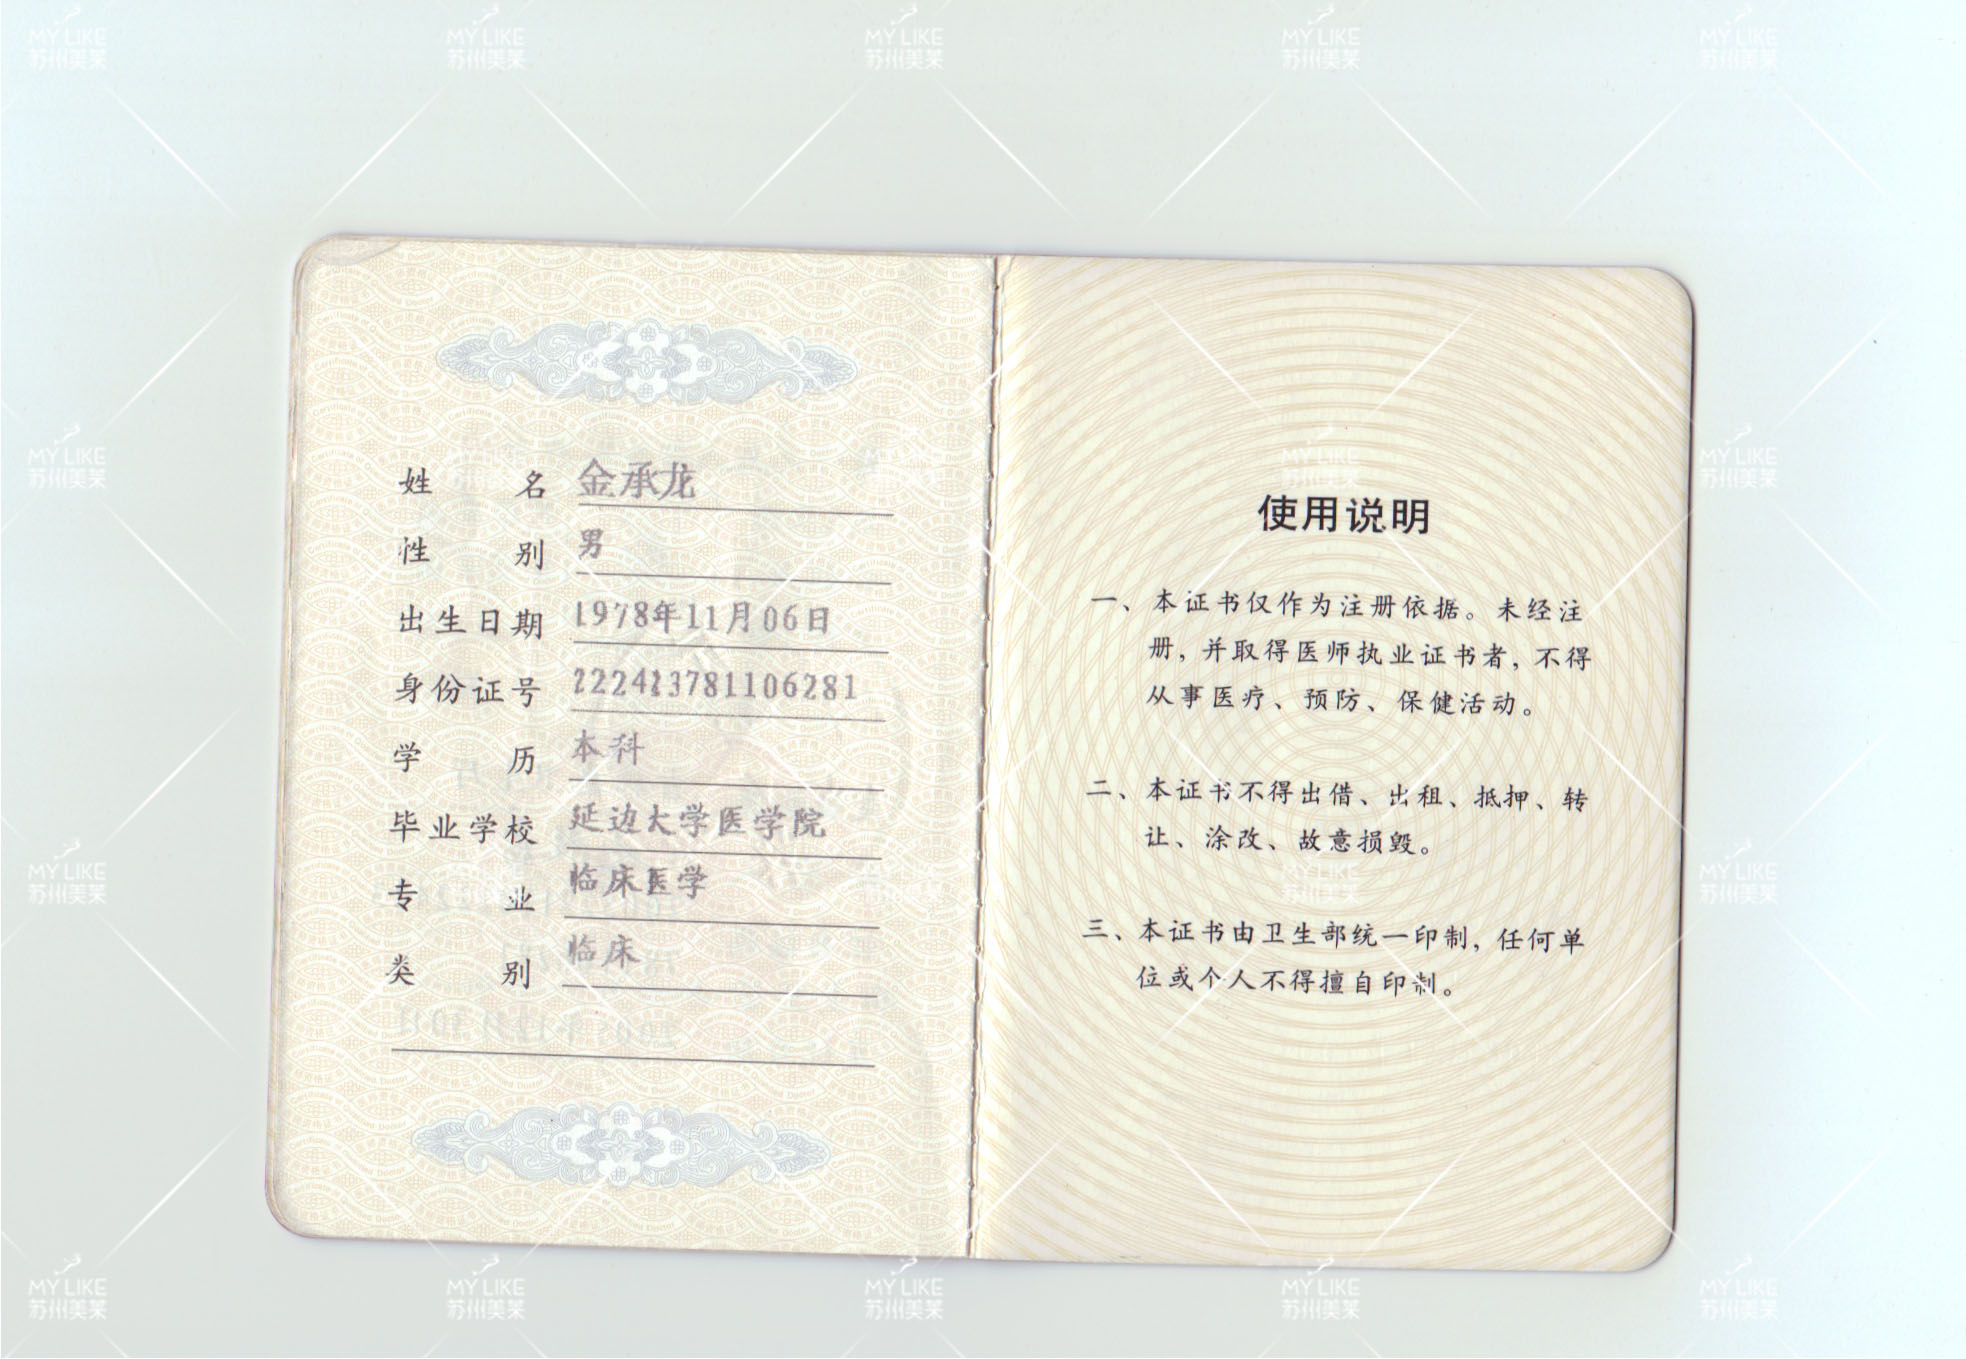 姓名 金承龙
性别 男
出生日期 1978年11月06日
身份证号
学历 本科
毕业学校 延边大学医学院
专业 临床医学
类别 临床
使用说明
一、本证书仅作为注册依据。未经注
册,并取得医师执业证书者,不得
从事医疗、预防、保健活动。
二、本证书不得出借、出租、抵押、转
让、涂改、故意损毁。
三、本证书由卫生部统一印制,任何单
位或个人不得擅自印制。
MY LIKE
苏州美莱